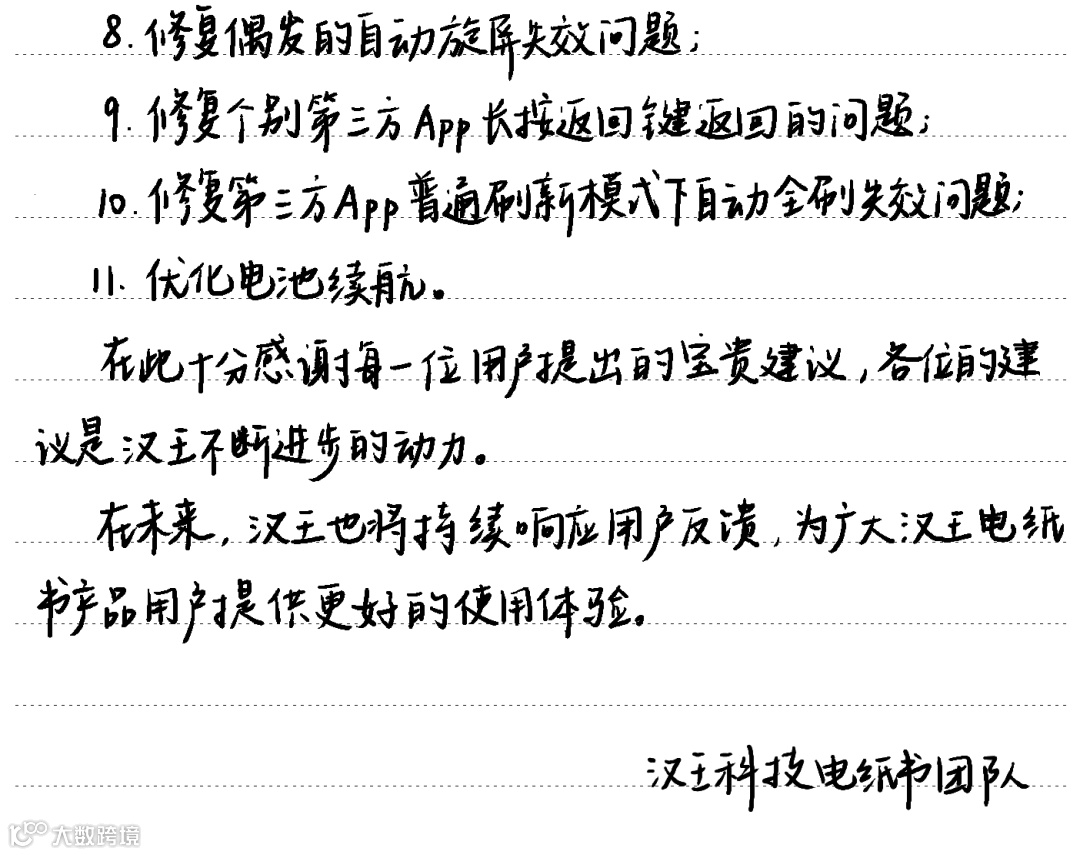 8. 修复偶发的自动旋屏失效问题;
9. 修复个别第三方App长按返回键返回的问题;
10. 修复第三方App普通刷新模式下自动全刷失效问题;
11. 优化电池续航。
在此十分感谢每一位用户提出的宝贵建议,各位的建
议是汉王不断进步的动力。
在未来,汉王也将持续响应用户反馈,为广大汉王电纸
书产品用户提供更好的使用体验。
汉王科技电纸书团队
大数跨境